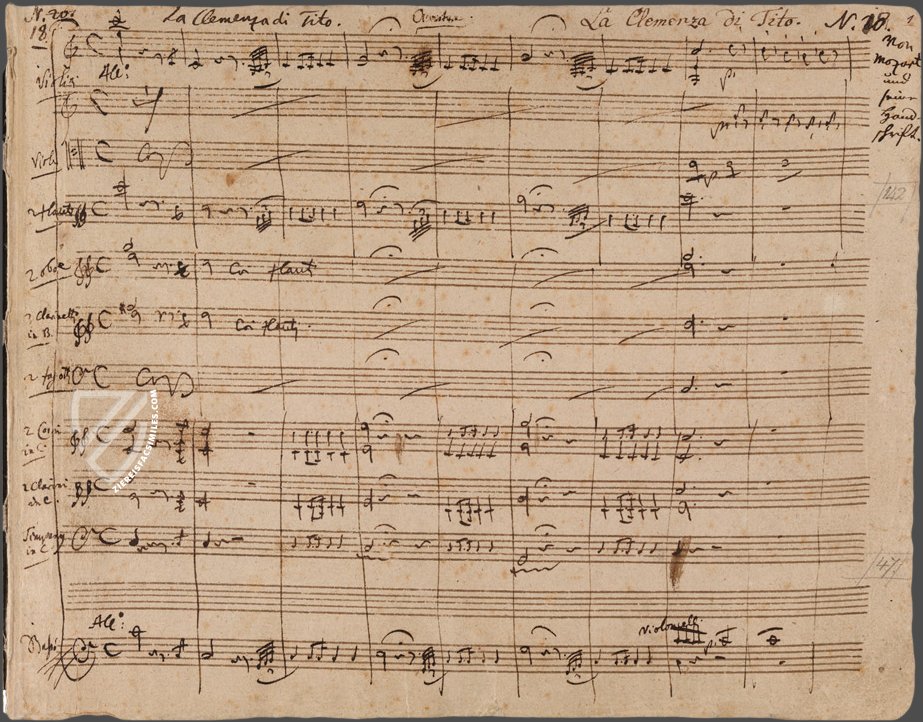 N. 20. La Clemenza di Tito. Overture. La Clemenza di Tito. N. 18.
18.
Von
Mozart
und
seiner
Hand-
schrift.
All:º
Violini
Viole
142
2 flauti
2 oboe
Coi flauti
2 Clarinetti
in B.
Coi flauti.
2 fagotti
2 Corni
in C
2 Clarini
in C.
ZIEREISFACSIMILES.COM
Tympany
in C
147
All:º
Violoncelli
Bassi